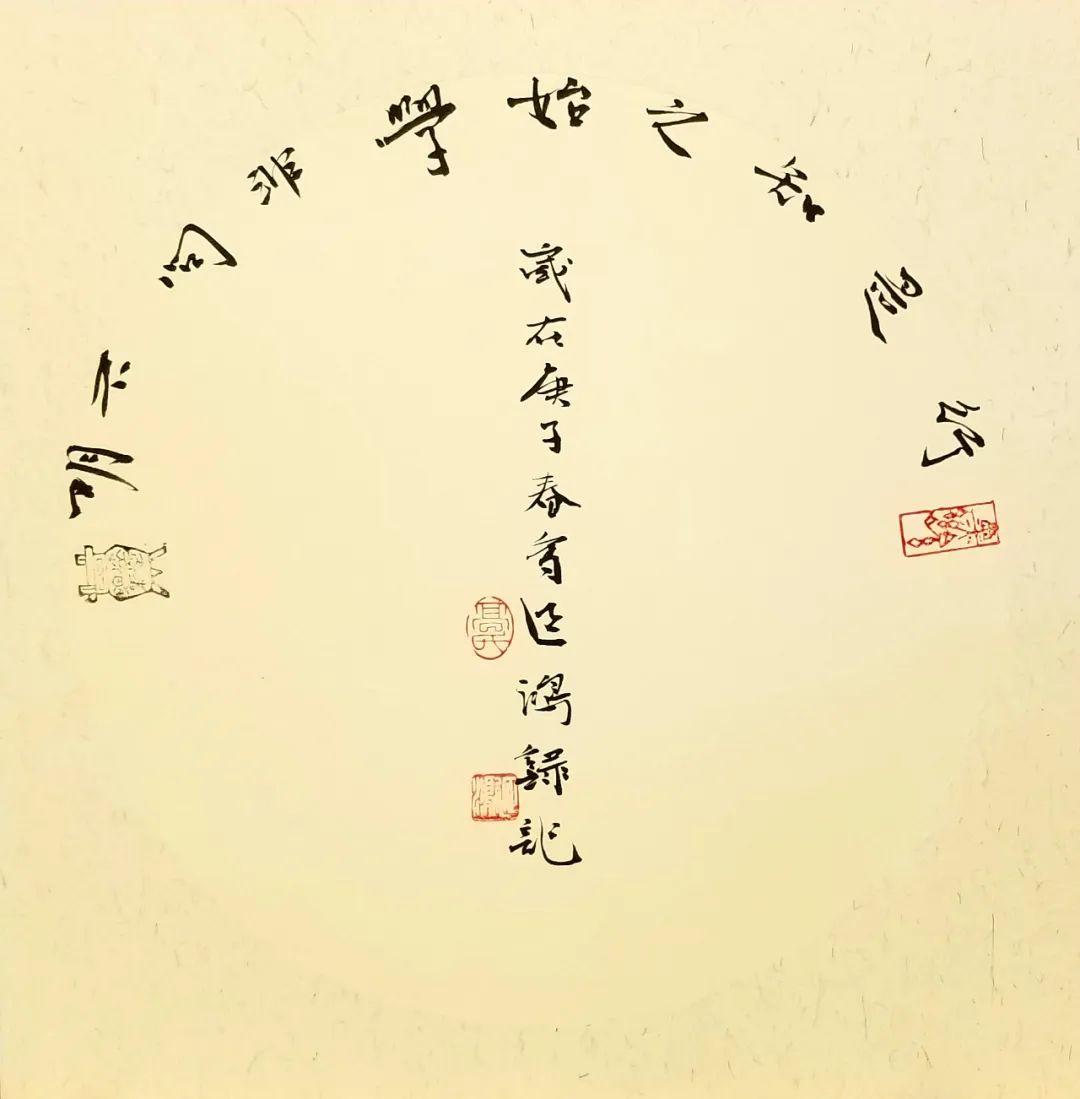 行是知之始學非問不明
歲在庚子春鴻錄記